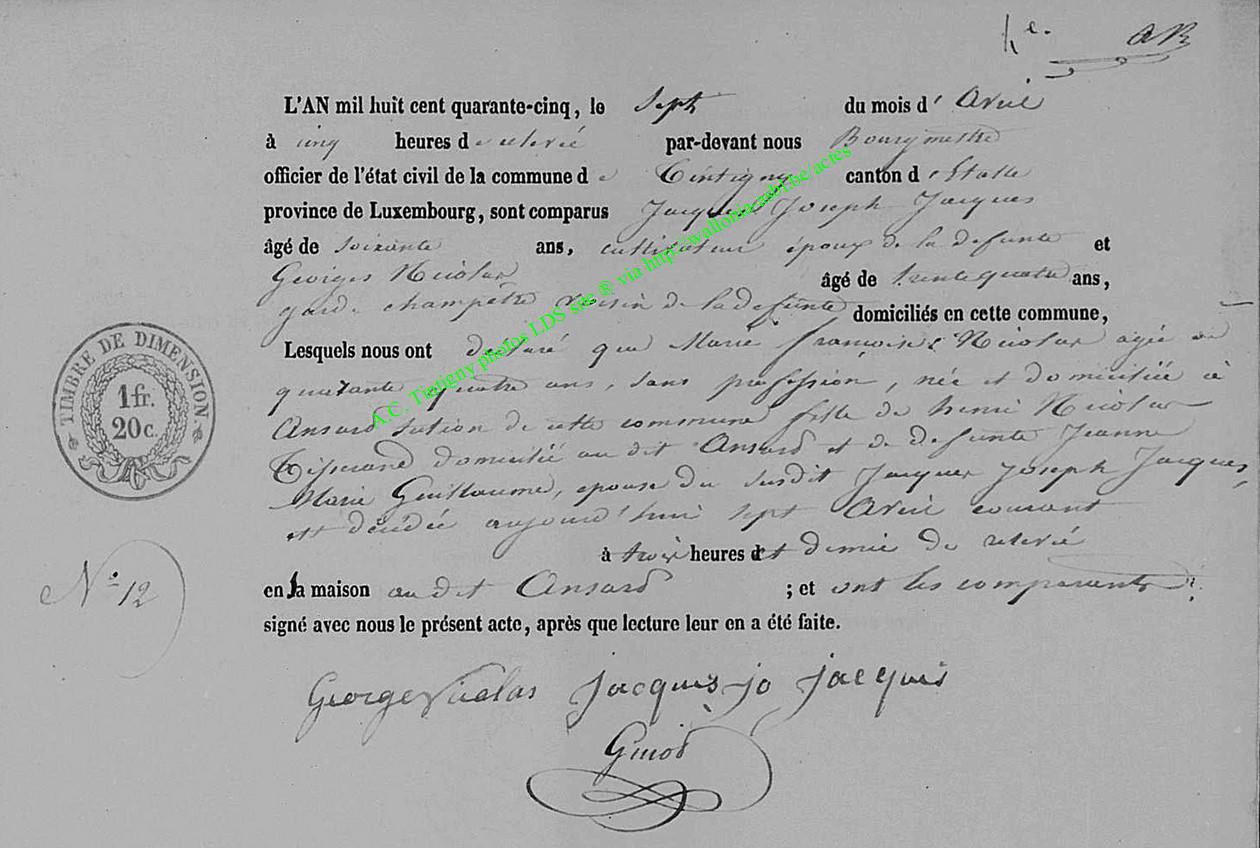 he. AB
L'AN mil huit cent quarante-cinq, le Sept du mois d' Avril
à cinq heures de relevé par-devant nous Bourgmestre
officier de l'état civil de la commune de Tintigny canton d'Etalle
province de Luxembourg, sont comparus Jacques Joseph Jacques
âgé de soixante ans, cultivateur époux de la defunte et
Georges Nicolas âgé de trente quatre ans,
garde champêtre voisin de la defunte domiciliés en cette commune,
Lesquels nous ont declaré que Marie françoise Nicolas agée de
quarante quatre ans, sans profession, née et domiciliée à
Ansard section de cette commune fille de henri Nicolas
Tisserand domicilié au dit Ansard et de defunte Jeanne
Marie Guillaume, epouse du susdit Jacques Joseph Jacques,
est décédée aujourd'hui sept Avril courant
à trois heures et demie de relevé
en sa maison au dit Ansard ; et ont les comparants
signé avec nous le présent acte, après que lecture leur en a été faite.
TIMBRE DE DIMENSION
1 fr.
20 c.
N° 12
George Nicolas Jacques jo jacques
Guiot
A.C. Tintigny photos LDS site ® via http://wallonia-asbl.be/actes